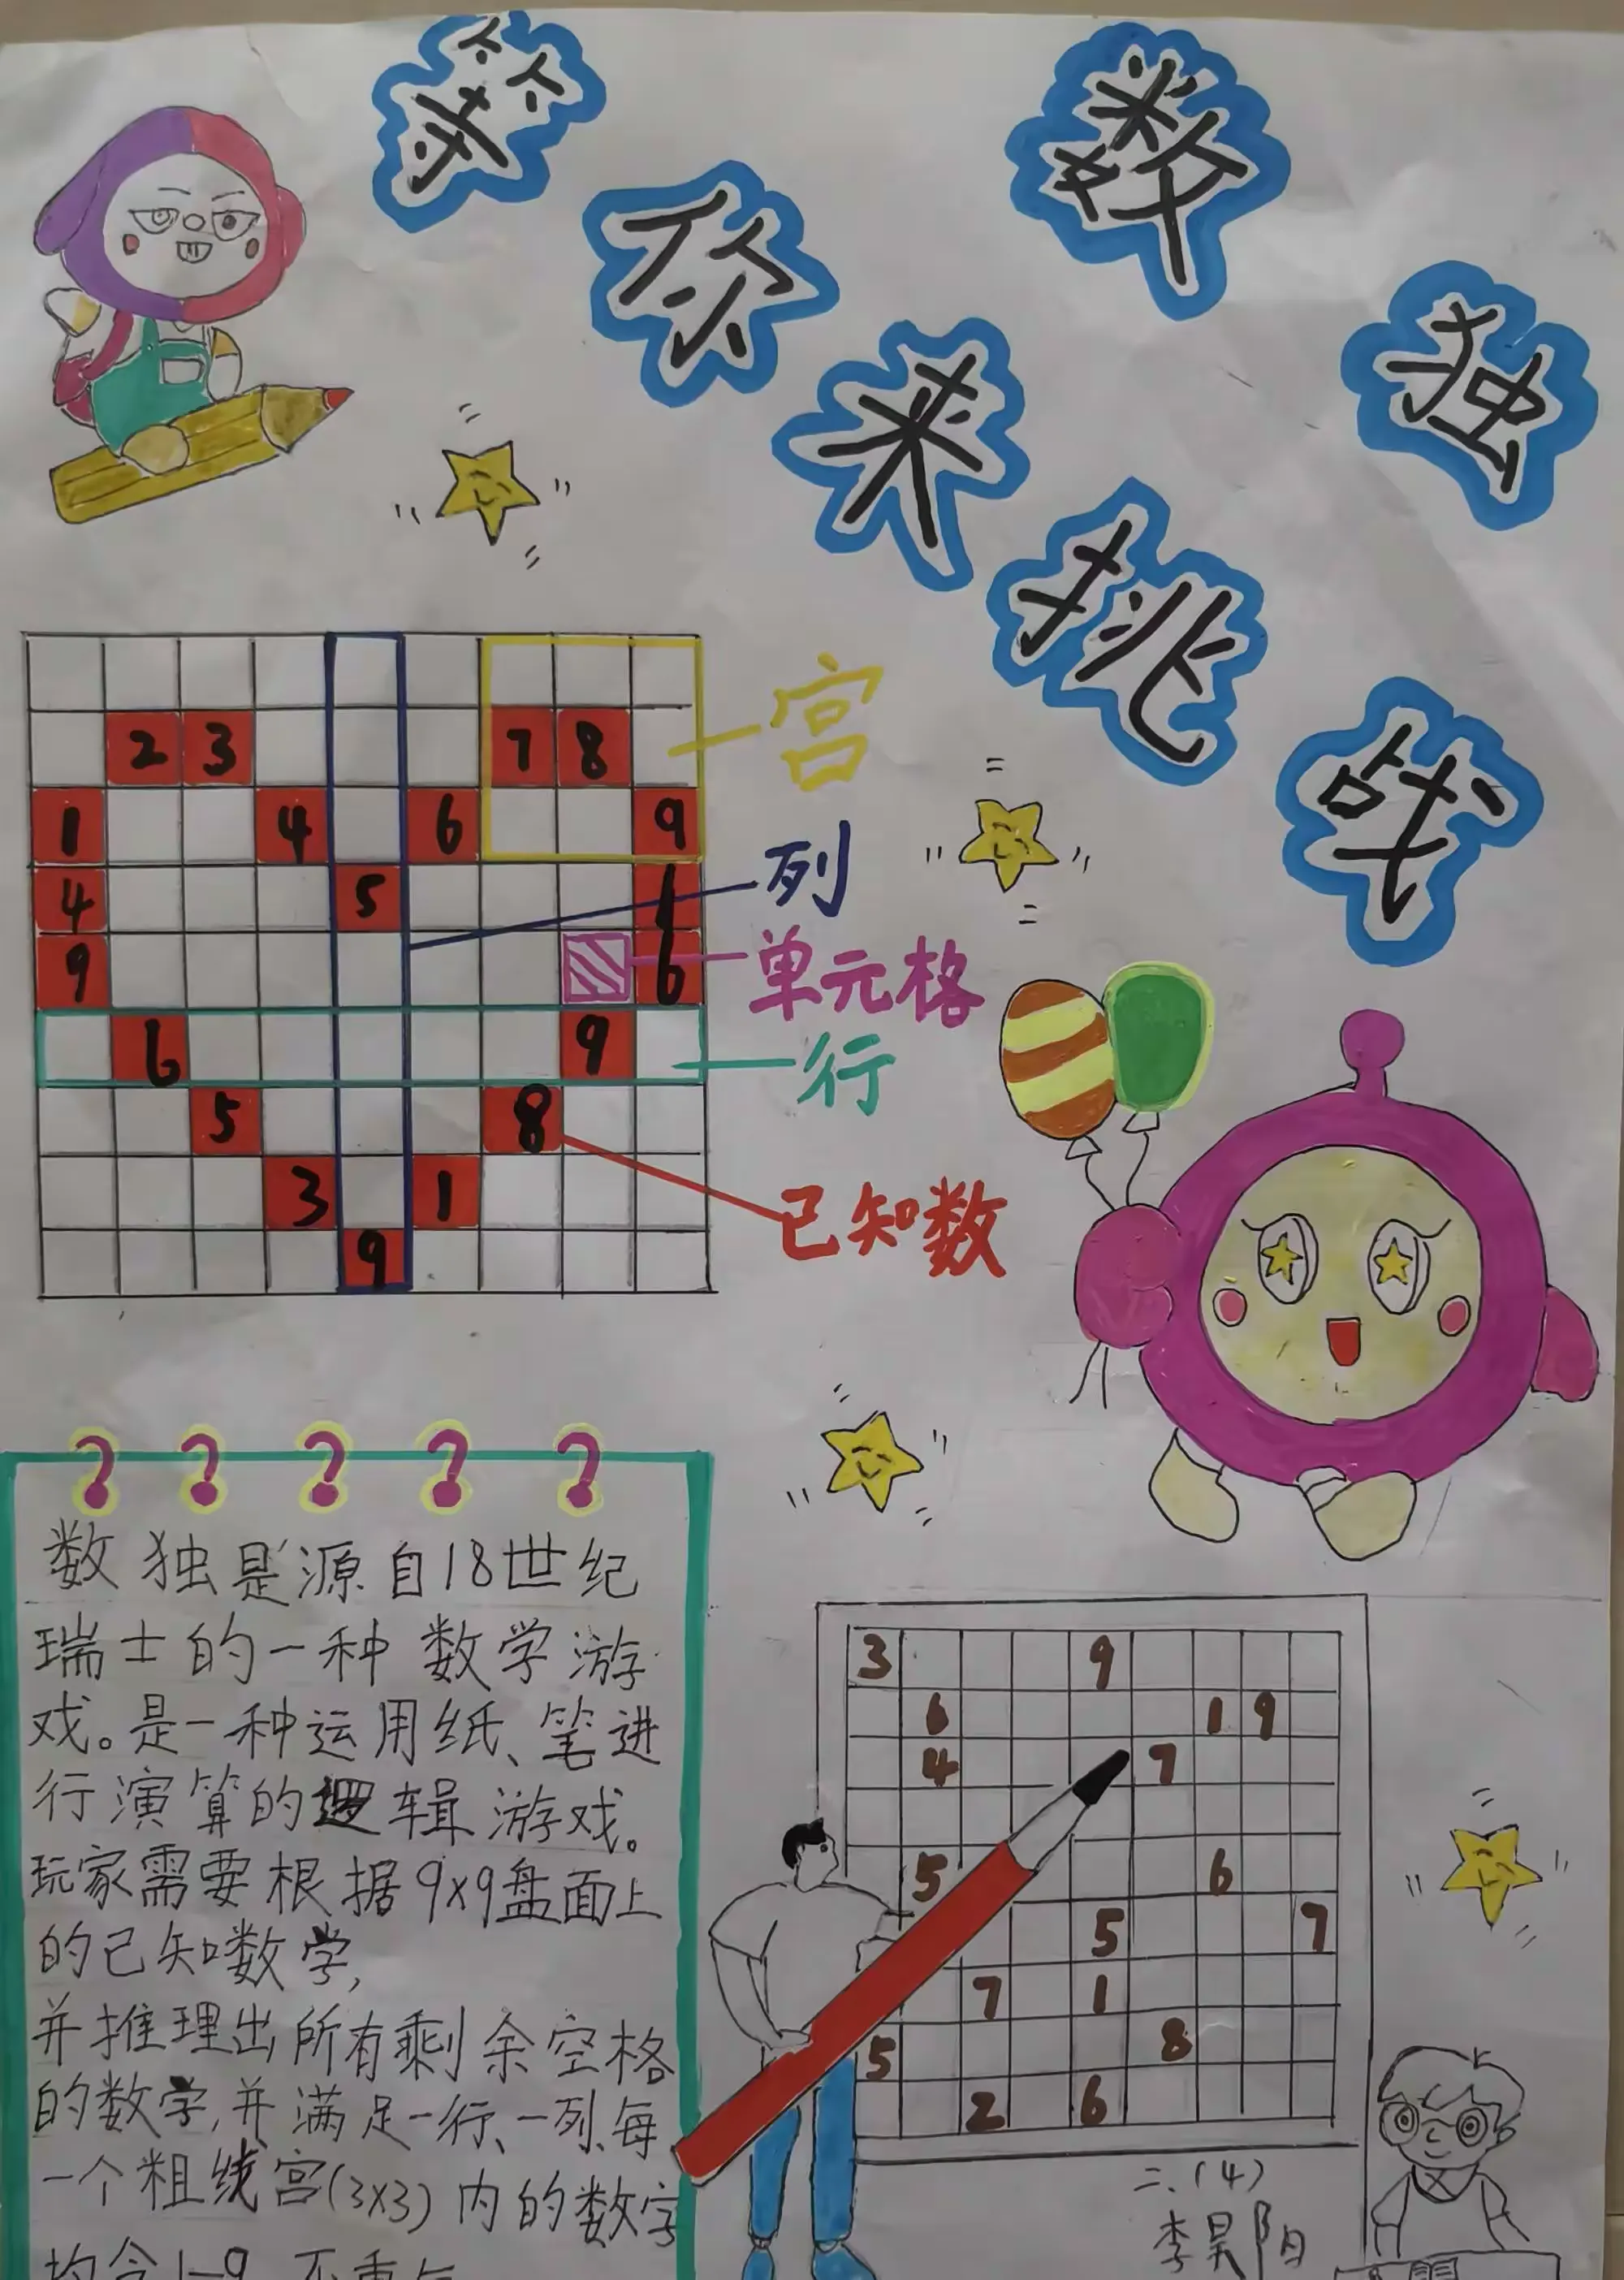 数独
等你来挑战
2 3 7 8
1 4 6 9
4 5 1
9 6
6 9
5 8
3 1
9
宫
列
单元格
行
已知数
? ? ? ? ?
数独是源自18世纪
瑞士的一种数学游
戏。是一种运用纸、笔进
行演算的逻辑游戏。
玩家需要根据9×9盘面上
的已知数学,
并推理出所有剩余空格
的数学,并满足一行、一列、每
一个粗线宫(3×3)内的数字
均含1-9,不重复
3 9
6 1 9
4 7
5 6
5 7
7 1
5 8
2 6
二、(4)
李昊阳